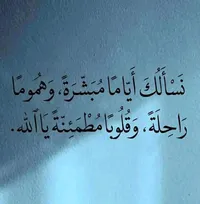 نَسْأَلُكَ أَيَّامًا مُبَشِّرَةً، وَهُمُومًا
رَاحِلَةً، وَقُلُوبًا مُطْمَئِنَّةً يَا اللّٰه.